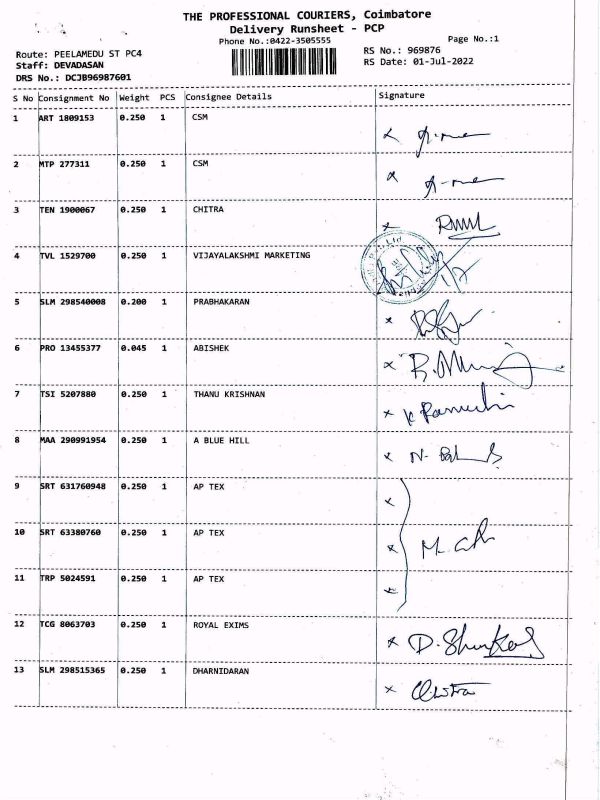 THE PROFESSIONAL COURIERS, Coimbatore
Delivery Runsheet - PCP
Phone No.:0422-3505555 Page No.:1
Route: PEELAMEDU ST PC4 RS No.: 969876
Staff: DEVADASAN RS Date: 01-Jul-2022
DRS No.: DCJB96987601
S No Consignment No Weight PCS Consignee Details Signature
1 ART 1809153 0.250 1 CSM
2 MTP 277311 0.250 1 CSM
3 TEN 1900067 0.250 1 CHITRA
4 TVL 1529700 0.250 1 VIJAYALAKSHMI MARKETING
5 SLM 298540008 0.200 1 PRABHAKARAN
6 PRO 13455377 0.045 1 ABISHEK
7 TSI 5207880 0.250 1 THANU KRISHNAN
8 MAA 290991954 0.250 1 A BLUE HILL
9 SRT 631760948 0.250 1 AP TEX
10 SRT 63380760 0.250 1 AP TEX
11 TRP 5024591 0.250 1 AP TEX
12 TCG 8063703 0.250 1 ROYAL EXIMS
13 SLM 298515365 0.250 1 DHARNIDARAN